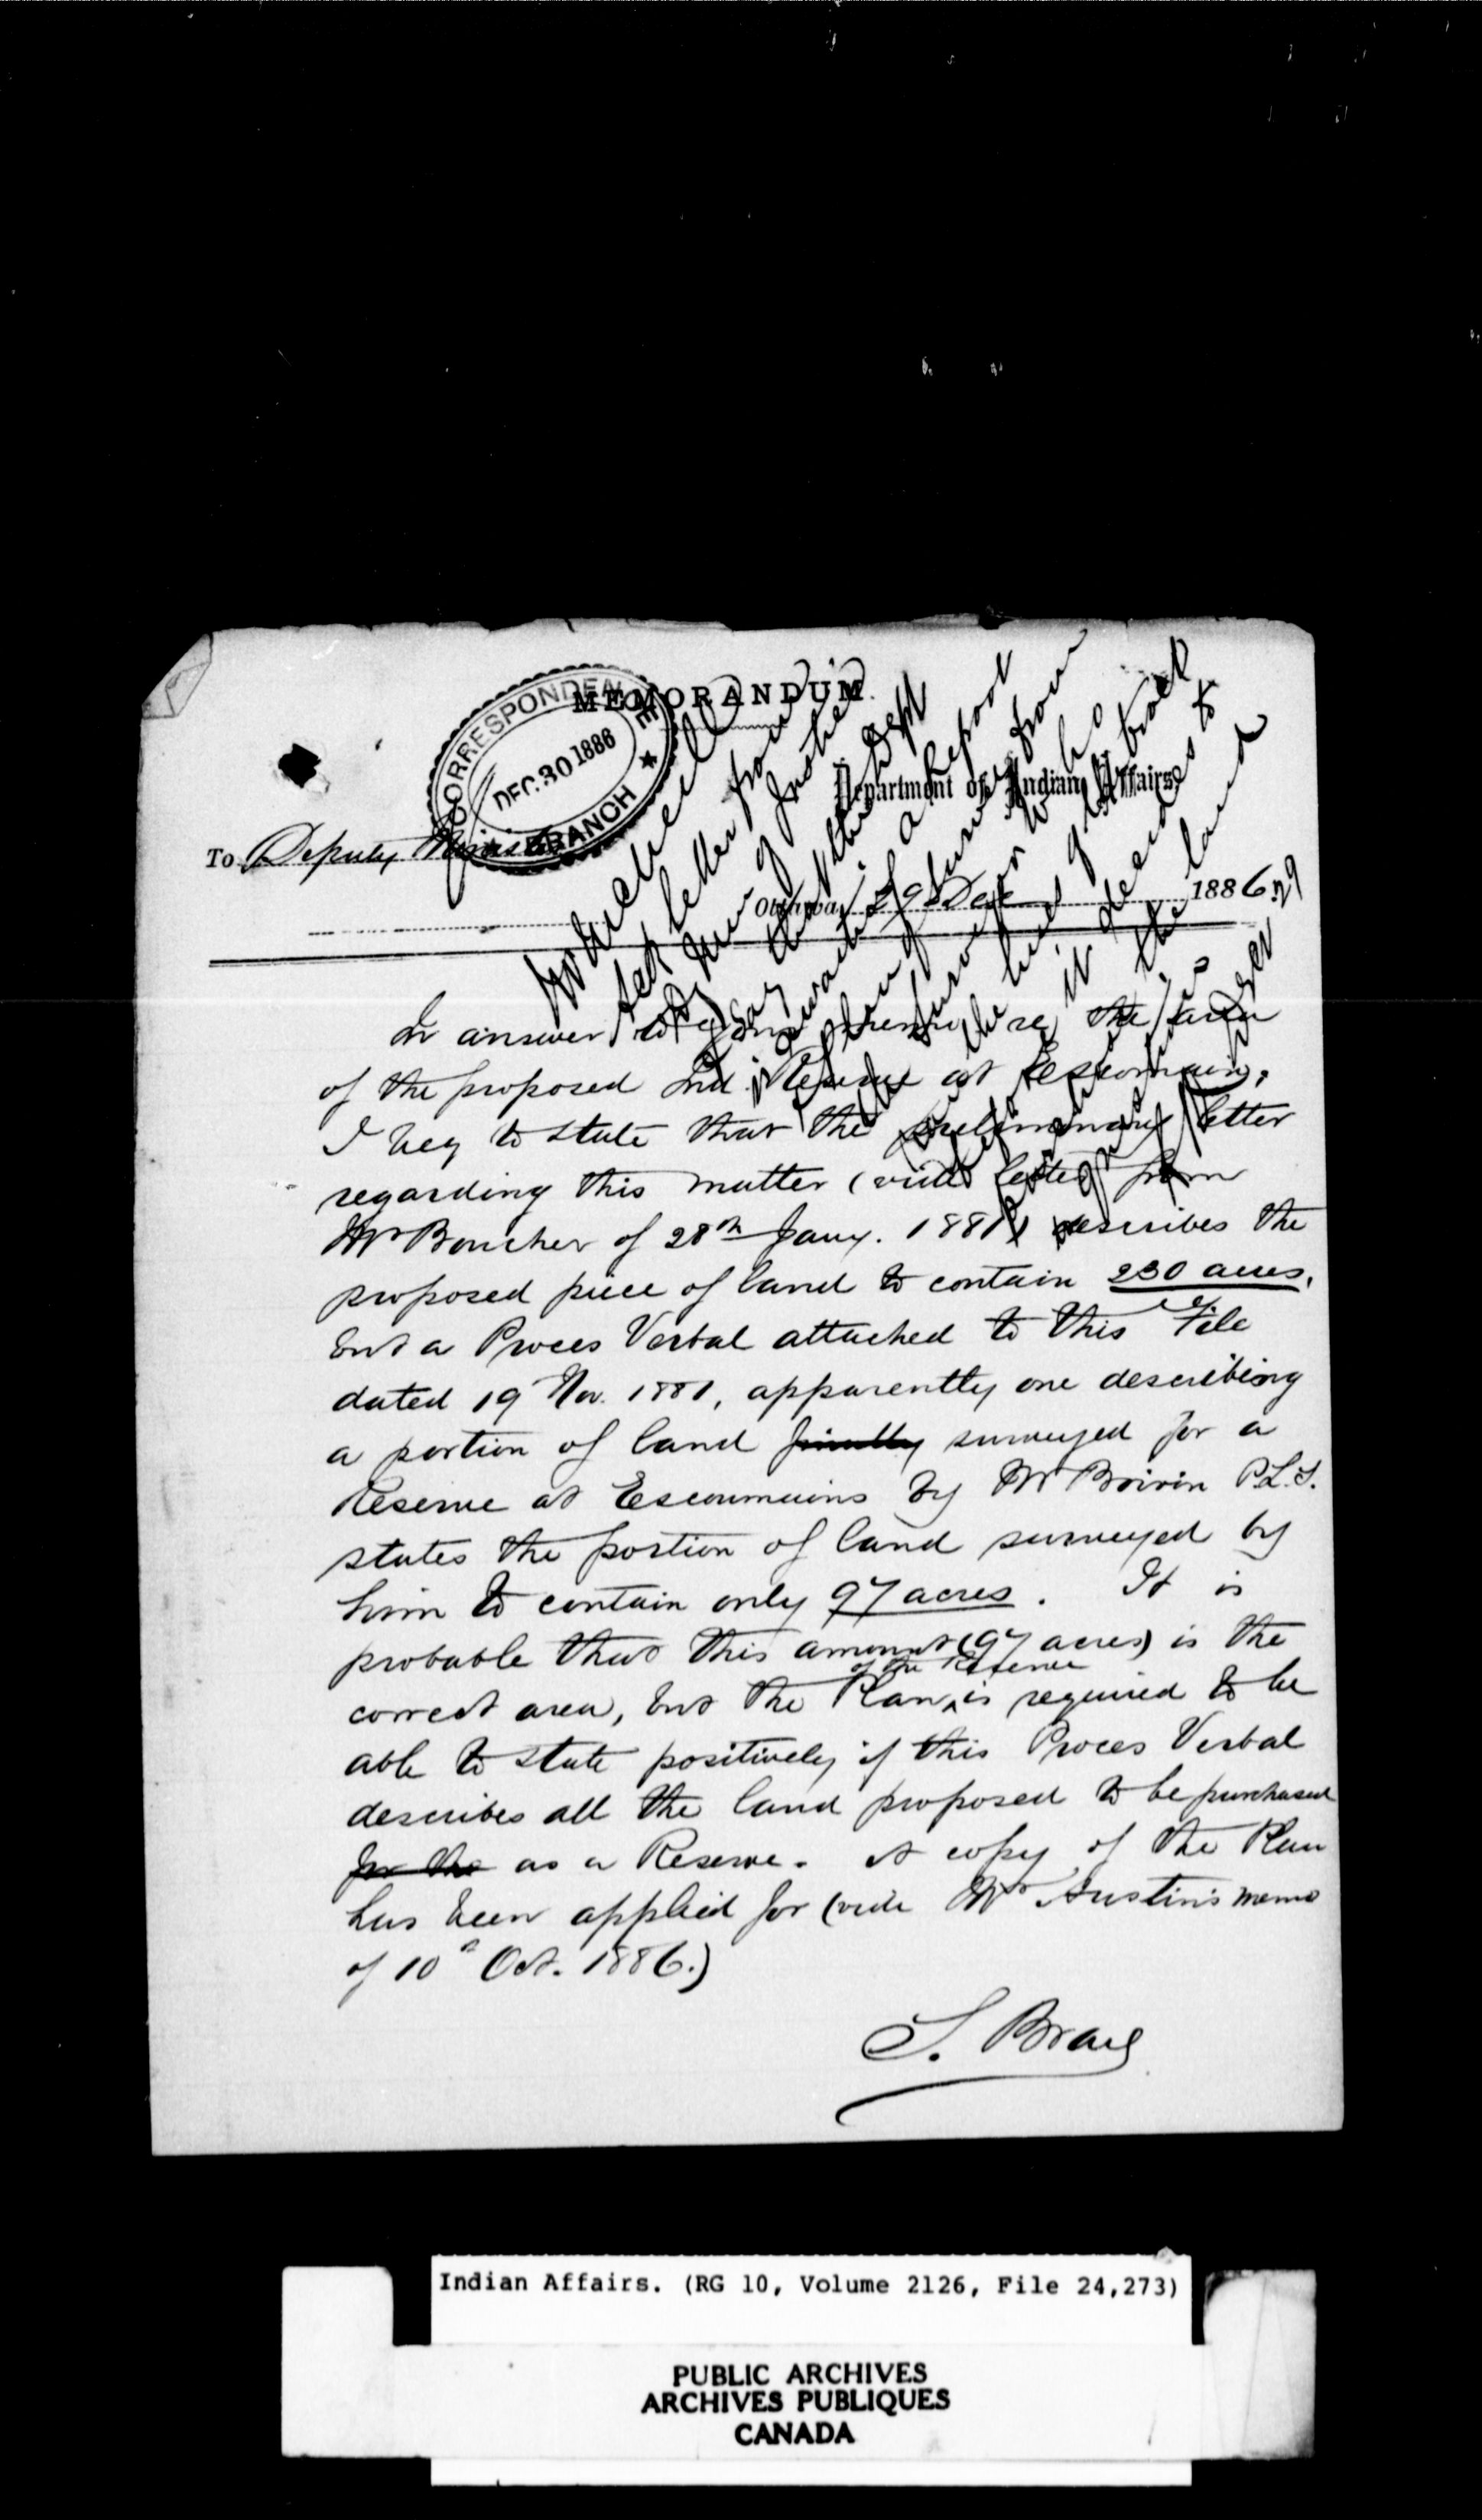 MEMORANDUM.
CORRESPONDENCE
DEC. 30 1886
BRANCH
Department of Indian Affairs
To Deputy Minister
Ottawa, 29 Dec 1886
In answer to your memo re the area
of the proposed Ind. Reserve at Escoumain,
I beg to state that the preliminary letter
regarding this matter (vide letter from
Mr Boucher of 28th Jany. 1881) describes the
proposed piece of land to contain 230 acres,
but a Proces Verbal attached to this File
dated 19 Nov. 1881, apparently one describing
a portion of land finally surveyed for a
Reserve at Escoumains by Mr Boivin P.L.S.
states the portion of land surveyed by
him to contain only 97 acres. It is
probable that this amount (97 acres) is the
of the Reserve
correct area, but the Plan ^ is required to be
able to state positively if this Proces Verbal
describes all the land proposed to be purchased
for the as a Reserve. A copy of the Plan
has been applied for (vide Mr Austin's memo
of 10th Oct. 1886.)
S. Bray
letter from
of Justice
say that this Dept
is awaiting a report
plan of survey from
the surveyor who
the lines of the tract
it desires to
the land
Indian Affairs. (RG 10, Volume 2126, File 24,273)
PUBLIC ARCHIVES
ARCHIVES PUBLIQUES
CANADA